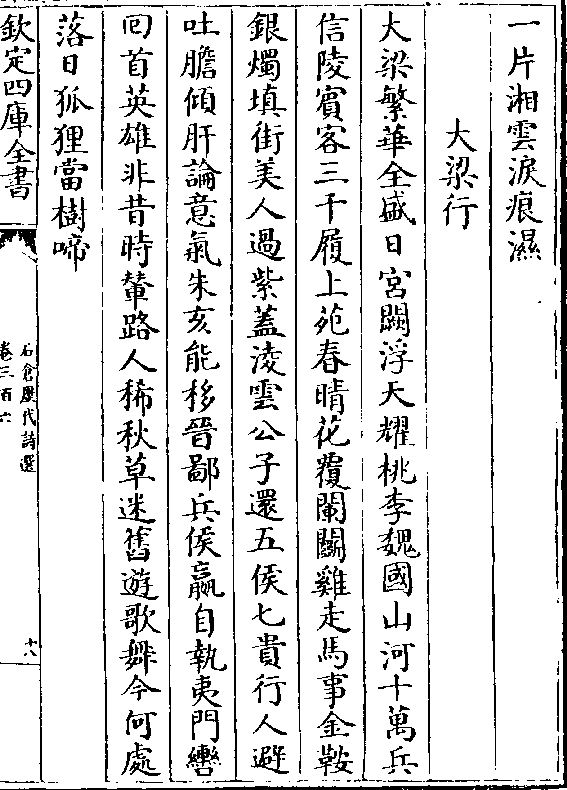 一片湘雲淚痕濕
大梁行
大梁繁華全盛日宮闕浮天耀桃李魏國山河十萬兵
信陵賓客三千履上苑春晴花覆闌鬭雞走馬事金鞍
銀燭填街美人過紫蓋淩雲公子還五侯七貴行人避
吐膽傾肝論意氣朱亥能移晉鄙兵侯嬴自執夷門轡
回首英雄非昔時輦路人稀秋草迷舊遊歌舞今何處
落日狐狸當樹啼
欽定四庫全書
石倉歷代詩選
卷三百六
十八